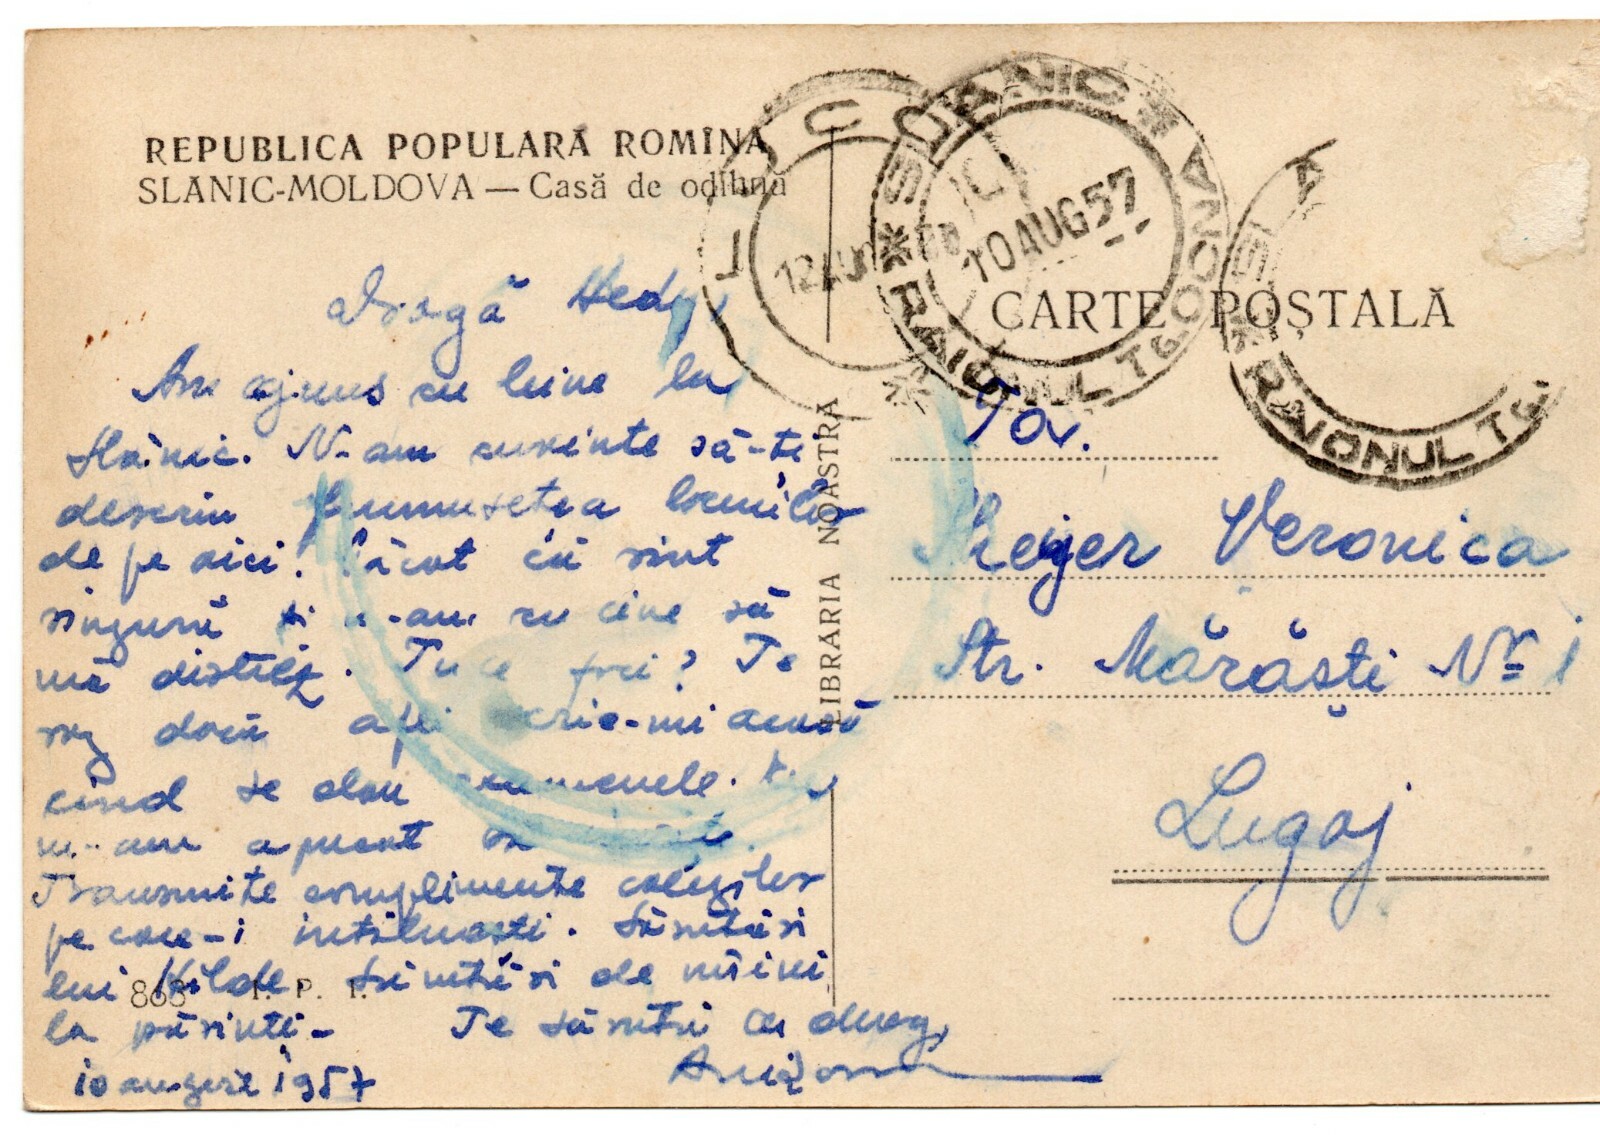 REPUBLICA POPULARĂ ROMÎNA
SLĂNIC-MOLDOVA — Casă de odihnă
Dragă Hedy,
Am ajuns cu bine la
Slănic. N-am cuvinte să-ți
descriu frumusețea locurilor
de pe aici. Păcat că sînt
singură și n-am cu cine să
mă distrez. Tu ce faci? Te
rog dacă afli scrie-mi acasă
cînd se dau examenele. Eu
n-am apucat
Transmite complimente colegilor
pe care-i întîlnești. Sărutări
lui Hilde, sărutări de mîini
la părinți-
Te sărut cu drag,
10 august 1957
868 I. P. I.
LIBRĂRIA NOASTRĂ
LUGOJ
12 AUG
SLANIC MOLDOVA
RAIONUL TG. OCNA
10 AUG 57
RAIONUL TG.
CARTE POȘTALĂ
Tov.
Veronica
Str. Mărăști Nr 1
Lugoj